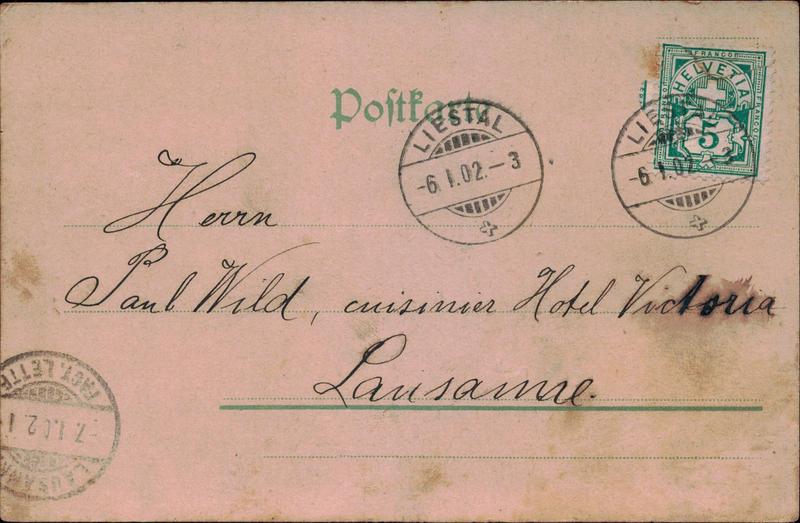 Postkarte
FRANCO
HELVETIA
FRANCO
5
LIESTAL
-6.I.02.-3
LIES
-6.I.02.-3
Herrn
Paul Wild, cuisinier Hotel Victoria
Lausanne.
FACT. LETTR
-7.I.02.I
LAUSANN